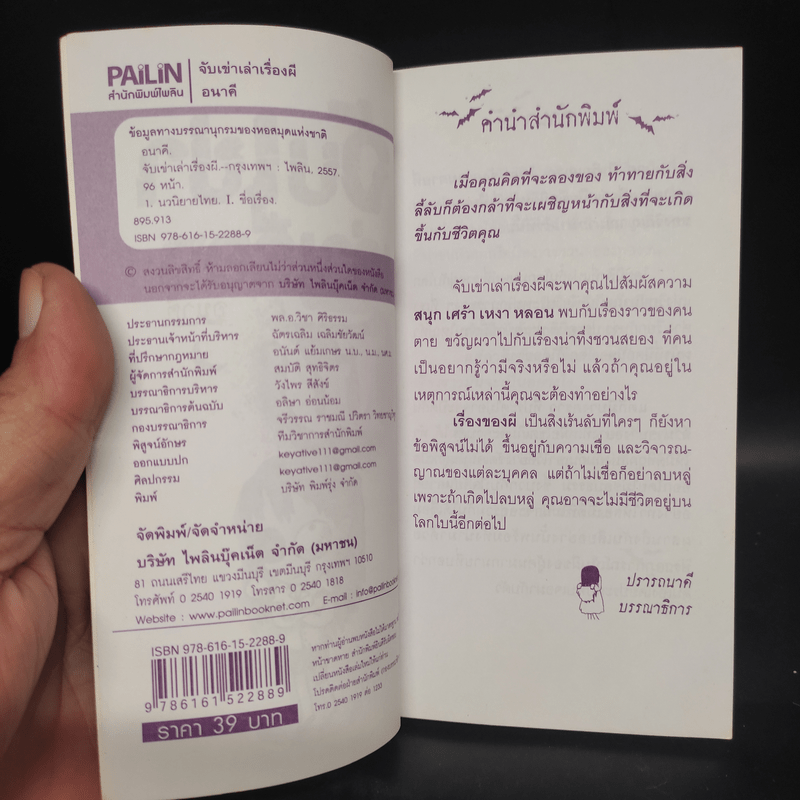 PAILIN
สำนักพิมพ์ไพลิน
จับเข่าเล่าเรื่องผี
อนาคี
ข้อมูลทางบรรณานุกรมของหอสมุดแห่งชาติ
อนาคี.
จับเข่าเล่าเรื่องผี.--กรุงเทพฯ : ไพลิน, 2557.
96 หน้า.
1. นวนิยายไทย. I. ชื่อเรื่อง.
895.913
ISBN 978-616-15-2288-9
© สงวนลิขสิทธิ์ ห้ามลอกเลียนไม่ว่าส่วนหนึ่งส่วนใดของหนังสือ
นอกจากจะได้รับอนุญาตจาก บริษัท ไพลินบุ๊คเน็ต จำกัด (มหาชน)
ประธานกรรมการ พล.อ.วิชา ศิริธรรม
ประธานเจ้าหน้าที่บริหาร ฉัตรเฉลิม เฉลิมชัยวัฒน์
ที่ปรึกษากฎหมาย อนันต์ แย้มเกษร น.บ., น.ม., นศ.ม.
ผู้จัดการสำนักพิมพ์ สมบัติ สุทธิจิตร
บรรณาธิการบริหาร วังไพร สีสังข์
บรรณาธิการต้นฉบับ อลิษา อ่อนน้อม
กองบรรณาธิการ จรีวรรณ ราชมณี ปวิตรา
พิสูจน์อักษร ทีมวิชาการสำนักพิมพ์
ออกแบบปก keyative111@gmail.com
ศิลปกรรม keyative111@gmail.com
พิมพ์ บริษัท พิมพ์รุ่ง จำกัด
จัดพิมพ์/จัดจำหน่าย
บริษัท ไพลินบุ๊คเน็ต จำกัด (มหาชน)
81 ถนนเสรีไทย แขวงมีนบุรี เขตมีนบุรี กรุงเทพฯ 10510
โทรศัพท์ 0 2540 1919 โทรสาร 0 2540 1818
Website : www.pailinbooknet.com E-mail : info@pailinbook
ISBN 978-616-15-2288-9
9 786161 522889
ราคา 39 บาท
หากท่านผู้อ่านพบหนังสือไม่ได้มาตรฐาน
หน้าขาดหาย สำนักพิมพ์ยินดีรับผิดชอบ
เปลี่ยนหนังสือเล่มใหม่ให้แก่ท่าน
โปรดติดต่อฝ่ายสำนักพิมพ์
โทร.0 2540 1919 ต่อ 1233
คำนำสำนักพิมพ์
เมื่อคุณคิดที่จะลองของ ท้าทายกับสิ่ง
ลี้ลับก็ต้องกล้าที่จะเผชิญหน้ากับสิ่งที่จะเกิด
ขึ้นกับชีวิตคุณ
จับเข่าเล่าเรื่องผีจะพาคุณไปสัมผัสความ
สนุก เศร้า เหงา หลอน พบกับเรื่องราวของคน
ตาย ขวัญผวาไปกับเรื่องน่าทึ่งชวนสยอง ที่คน
เป็นอยากรู้ว่ามีจริงหรือไม่ แล้วถ้าคุณอยู่ใน
เหตุการณ์เหล่านี้คุณจะต้องทำอย่างไร
เรื่องของผี เป็นสิ่งเร้นลับที่ใครๆ ก็ยังหา
ข้อพิสูจน์ไม่ได้ ขึ้นอยู่กับความเชื่อ และวิจารณ-
ญาณของแต่ละบุคคล แต่ถ้าไม่เชื่อก็อย่าลบหลู่
เพราะถ้าเกิดไปลบหลู่ คุณอาจจะไม่มีชีวิตอยู่บน
โลกใบนี้อีกต่อไป
ปรารถนาดี
บรรณาธิการ